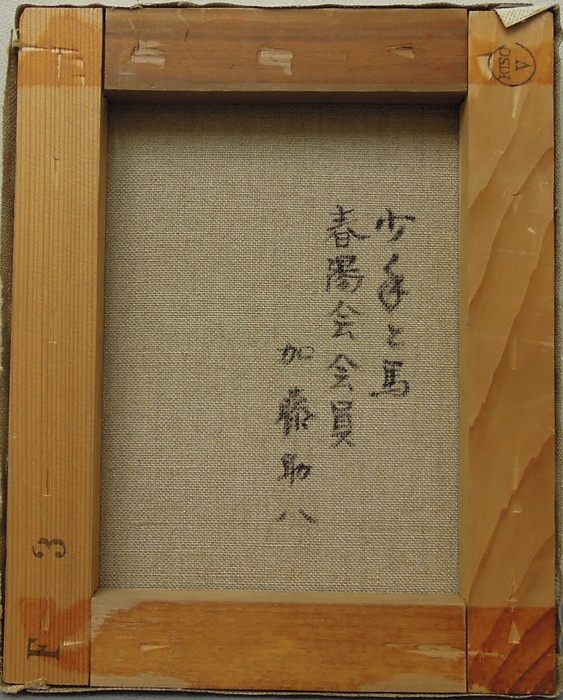 少年と馬
春陽会会員
加藤助八
KISO
A
F 3